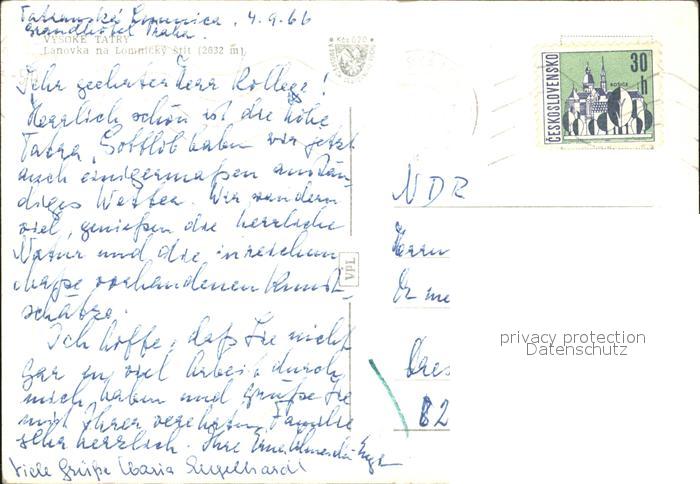 Tatranská Lomnica, 4.9.66
Grandhotel Praha.
VYSOKÉ TATRY
Lanovka na Lomnický štít (2632 m)
Kčs 0,20
Sehr geehrter Herr Kollege!
Herrlich schön ist die hohe
Tatra. Gottlob haben wir jetzt
auch einigermaßen anstän-
diges Wetter. Wir wandern
viel, genießen die herrliche
Natur und die in reichem
maße vorhandenen Kunst-
schätze.
Ich hoffe, daß Sie nicht
gar zu viel Arbeit durch
mich haben und grüße Sie
mit Ihrer verehrten Familie
sehr herzlich. Ihre
Viele Grüße Maria Engelhardt
VPL
ČESKOSLOVENSKO
30 h
KOŠICE
NDR
Herrn
privacy protection
Datenschutz
Dres
82